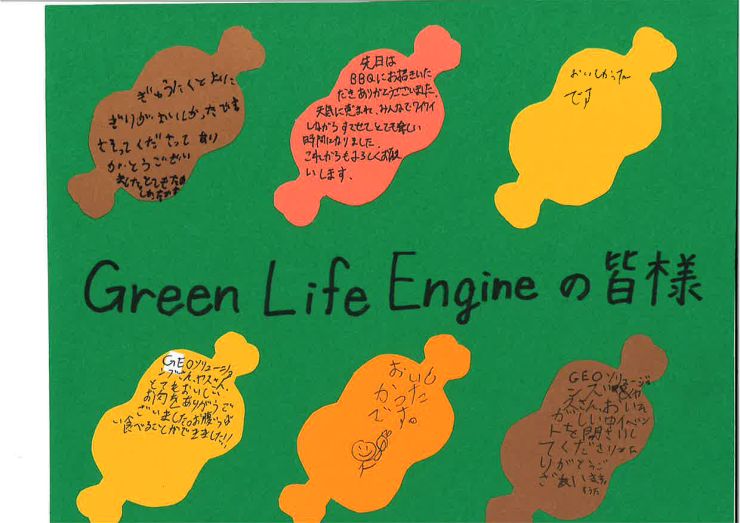 ぎゅうたくと
おいしかったです
さそってくださって あり
がとうござい
ました。とてもたの
先日は
BBQにお招きいた
だきありがとうございました。
天気に恵まれ、みんなでワイワイ
しながらすごせてとても楽しい
時間になりました。
これからもよろしくお願
いします。
おいしかったー
です
Green Life Engine の皆様
GEOソリューショ
ンズさん、ヤスさん、
とてもおいしい
お肉をありがうご
ざいました。お腹いっぱ
い食べることができました!!
おいし
かった
です。
GEOソリューショ
ンズ
さん、お
がしい中イベン
トを開さいし
てくださり
りがとうご
ざ います。